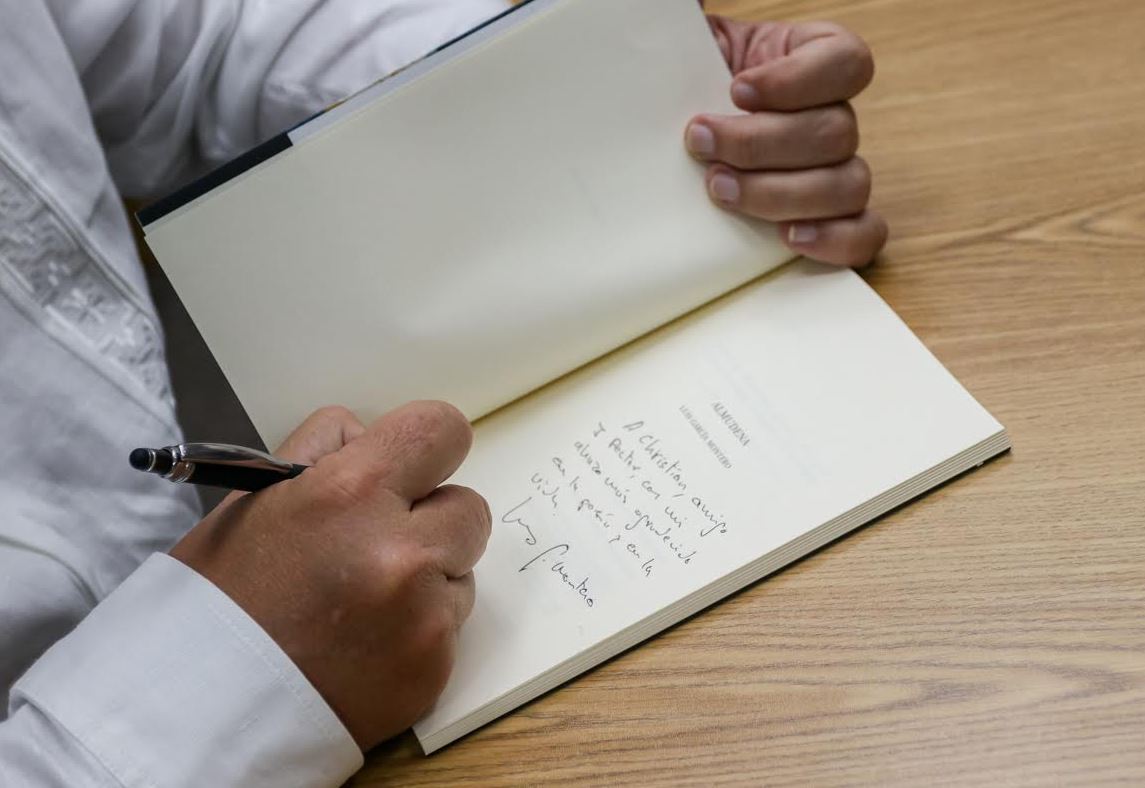 ALMUDENA
LUIS GARCÍA MONTERO
A Christian, amigo
y Rector, con mi
abrazo más agradecido
en la poesía y en la
vida.
Luis G. Montero